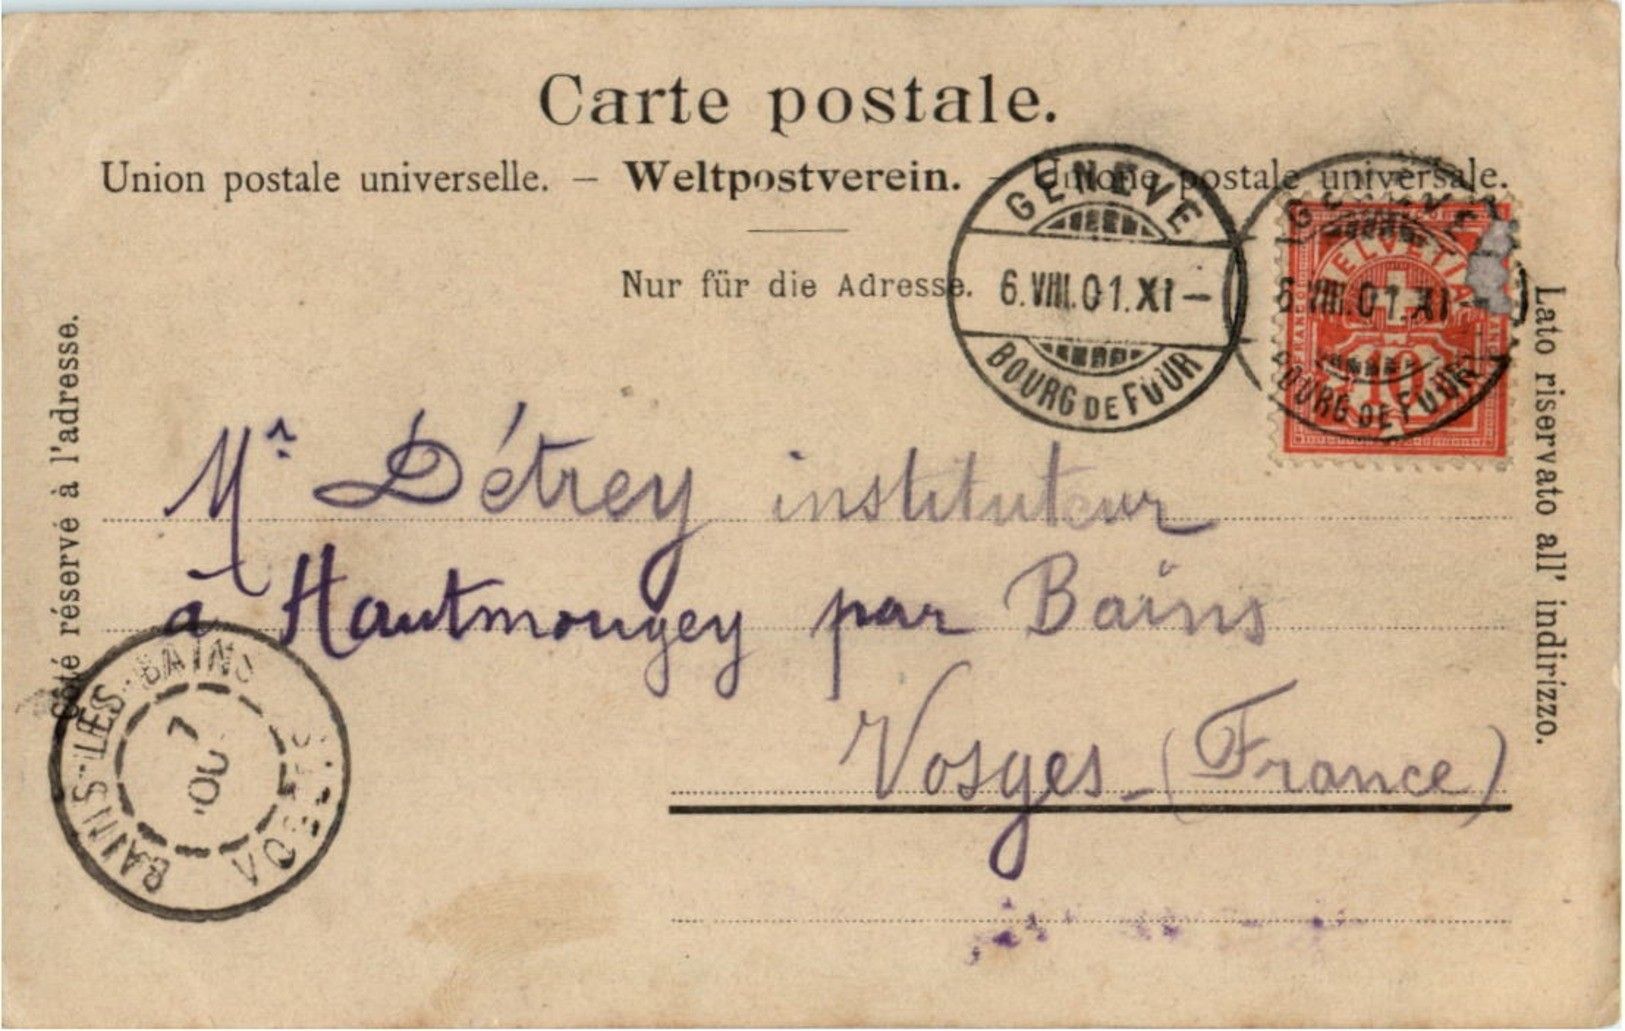 Carte postale.
Union postale universelle. – Weltpostverein. – Unione postale universale.
Nur für die Adresse.
Côté réservé à l'adresse.
Lato riservato all' indirizzo.
GENÈVE
6.VIII.01.XI–
BOURG DE FOUR
GENÈVE
6.VIII.01.XI–
BOURG DE FOUR
HELVETIA
FRANCO
10
Mr Détrey instituteur
à Hautmougey par Bains
Vosges - (France)
BAINS-LES-BAINS
7
VOSGES